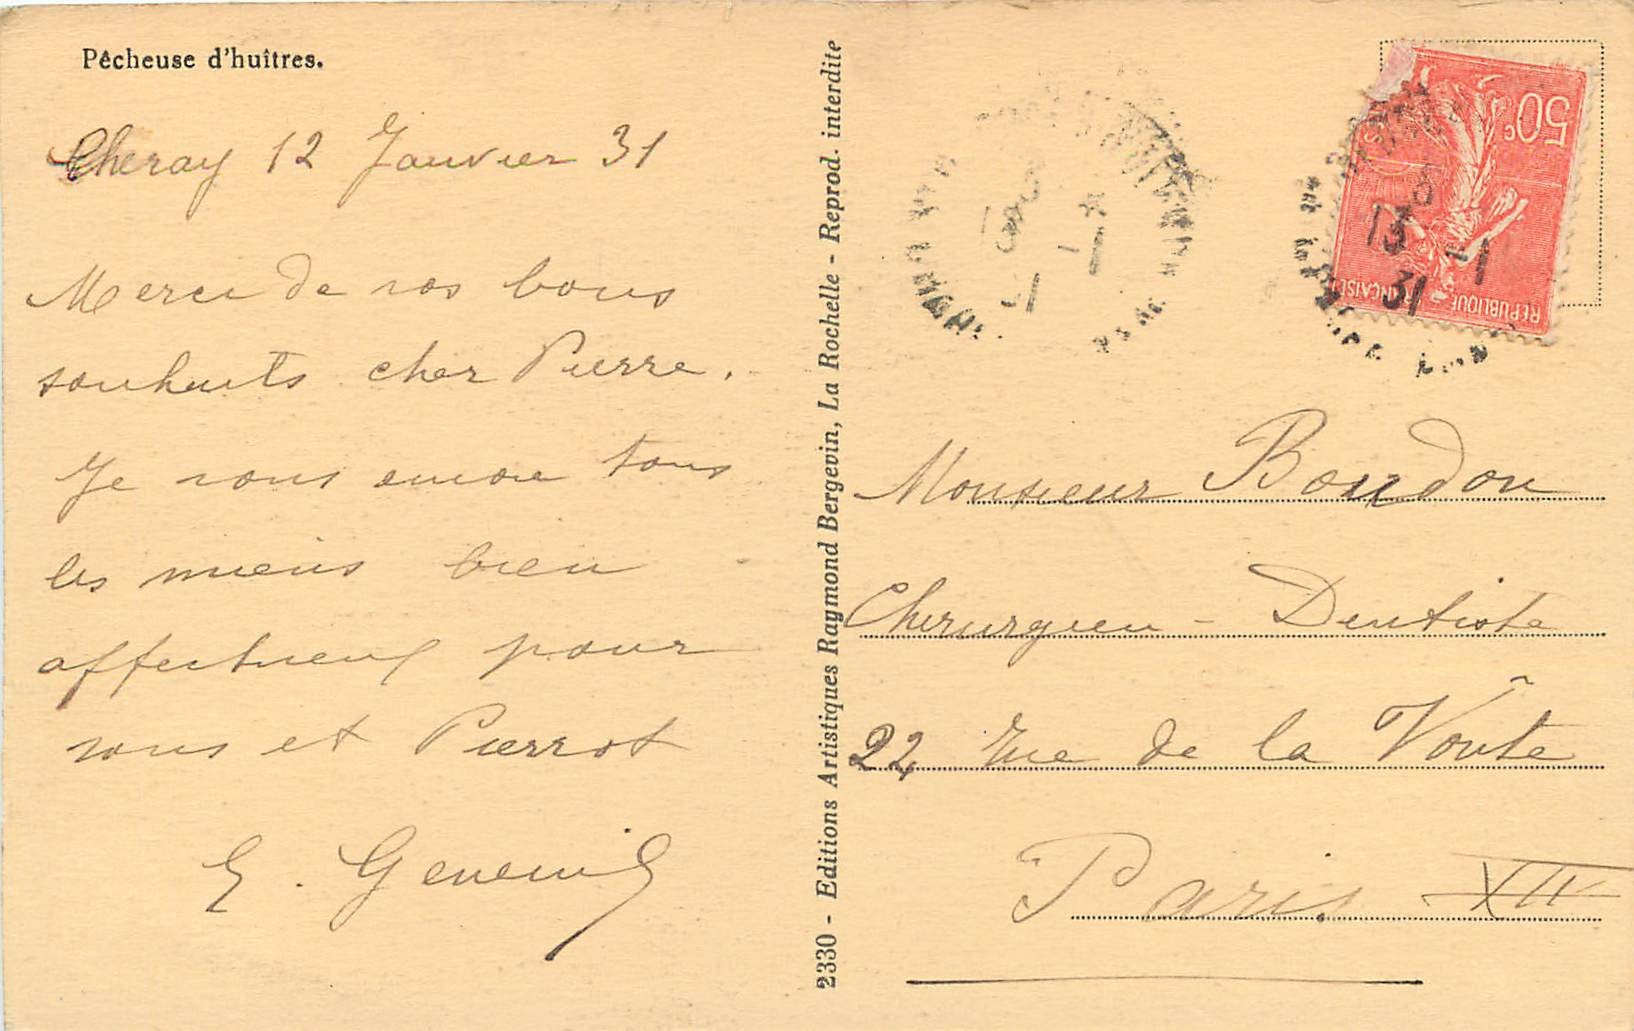 Pêcheuse d'huîtres.
Cheray 12 Janvier 31
Merci de vos bons
souhaits cher Pierre.
Je vous envoie tous
les miens bien
affectueux pour
vous et Pierrot
E.
2330 - Editions Artistiques Raymond Bergevin, La Rochelle - Reprod. interdite
50c
REPUBLIQUE FRANÇAISE
13 -1
31
13 -1
31
Monsieur Boudon
Chirurgien - Dentiste
22 rue de la Voûte
Paris XII